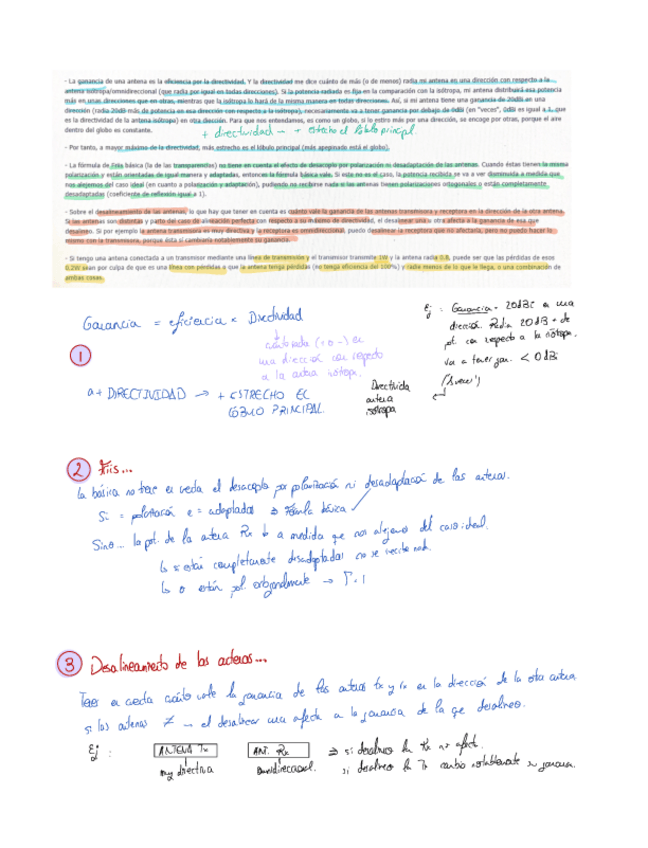 - La ganancia de una antena es la eficiencia por la directividad. Y la directividad me dice cuánto de más (o de menos) radia mi antena en una dirección con respecto a la
antena isótropa/omnidireccional (que radia por igual en todas direcciones). Si la potencia radiada es fija en la comparación con la isótropa, mi antena distribuirá esa potencia
más en unas direcciones que en otras, mientras que la isótropa lo hará de la misma manera en todas direcciones. Así, si mi antena tiene una ganancia de 20dBi en una
dirección (radia 20dB más de potencia en esa dirección con respecto a la isótropa), necesariamente va a tener ganancia por debajo de 0dBi (en "veces", 0dBi es igual a 1, que
es la directividad de la antena isótropa) en otra dirección. Para que nos entendamos, es como un globo, si lo estiro más por una dirección, se encoge por otras, porque el aire
dentro del globo es constante.
+ directividad → + estrecho el lóbulo principal
- Por tanto, a mayor máximo de la directividad, más estrecho es el lóbulo principal (más apepinado está el globo).
- La fórmula de Friis básica (la de las transparencias) no tiene en cuenta el efecto de desacoplo por polarización ni desadaptación de las antenas. Cuando éstas tienen la misma
polarización y están orientadas de igual manera y adaptadas, entonces la fórmula básica vale. Si este no es el caso, la potencia recibida se va a ver disminuida a medida que
nos alejemos del caso ideal (en cuanto a polarización y adaptación), pudiendo no recibirse nada si las antenas tienen polarizaciones ortogonales o están completamente
desadaptadas (coeficiente de reflexión igual a 1).
- Sobre el desalineamiento de las antenas, lo que hay que tener en cuenta es cuánto vale la ganancia de las antenas transmisora y receptora en la dirección de la otra antena.
Si las antenas son distintas y parto del caso de alineación perfecta con respecto a su máximo de directividad, el desalinear una u otra afecta a la ganancia de esa que
desalineo. Si por ejemplo la antena transmisora es muy directiva y la receptora es omnidireccional, puedo desalinear la receptora que no afectaría, pero no puedo hacer lo
mismo con la transmisora, porque ésta sí cambiaría notablemente su ganancia.
- Si tengo una antena conectada a un transmisor mediante una línea de transmisión y el transmisor transmite 1W y la antena radia 0.8, puede ser que las pérdidas de esos
0.2W sean por culpa de que es una línea con pérdidas o que la antena tenga pérdidas (no tenga eficiencia del 100%) y radie menos de lo que le llega, o una combinación de
ambas cosas.
Ganancia = eficiencia × Directividad
cuánto radia (+ o -) en
una dirección con respecto
a la antena isótropa.
Ej: Ganancia = 20dBi en una
dirección. Radia 20dB + de
pot. con respecto a la isótropa.
va a tener gan. < 0 dBi
(1 veces)
Directivida
antena
isótropa
1
a + DIRECTIVIDAD → + ESTRECHO EL
LÓBULO PRINCIPAL.
2 Friis...
La básica no tiene en cuenta el desacoplo por polarización ni desadaptación de las antenas.
Si = polarización e = adaptadas ⇒ Fórmula básica ✓
Sino... la pot. de la antena Rx ↓ a medida que nos alejemos del caso ideal.
↳ si están completamente desadaptadas no se recibe nada.
↳ o están pol ortogonalmente →
3 Desalineamiento de las antenas...
Tener en cuenta cuánto vale la ganancia de las antenas tx y rx en la dirección de la otra antena
si las antenas ≠ → el desalinear una afecta a la ganancia de la que desalineo.
Ej :
ANTENA Tx
muy directiva
ANT. Rx
Omnidireccional.
⇒ si desalineo la Rx no afecta.
si desalineo la Tx cambia notablemente su ganancia.